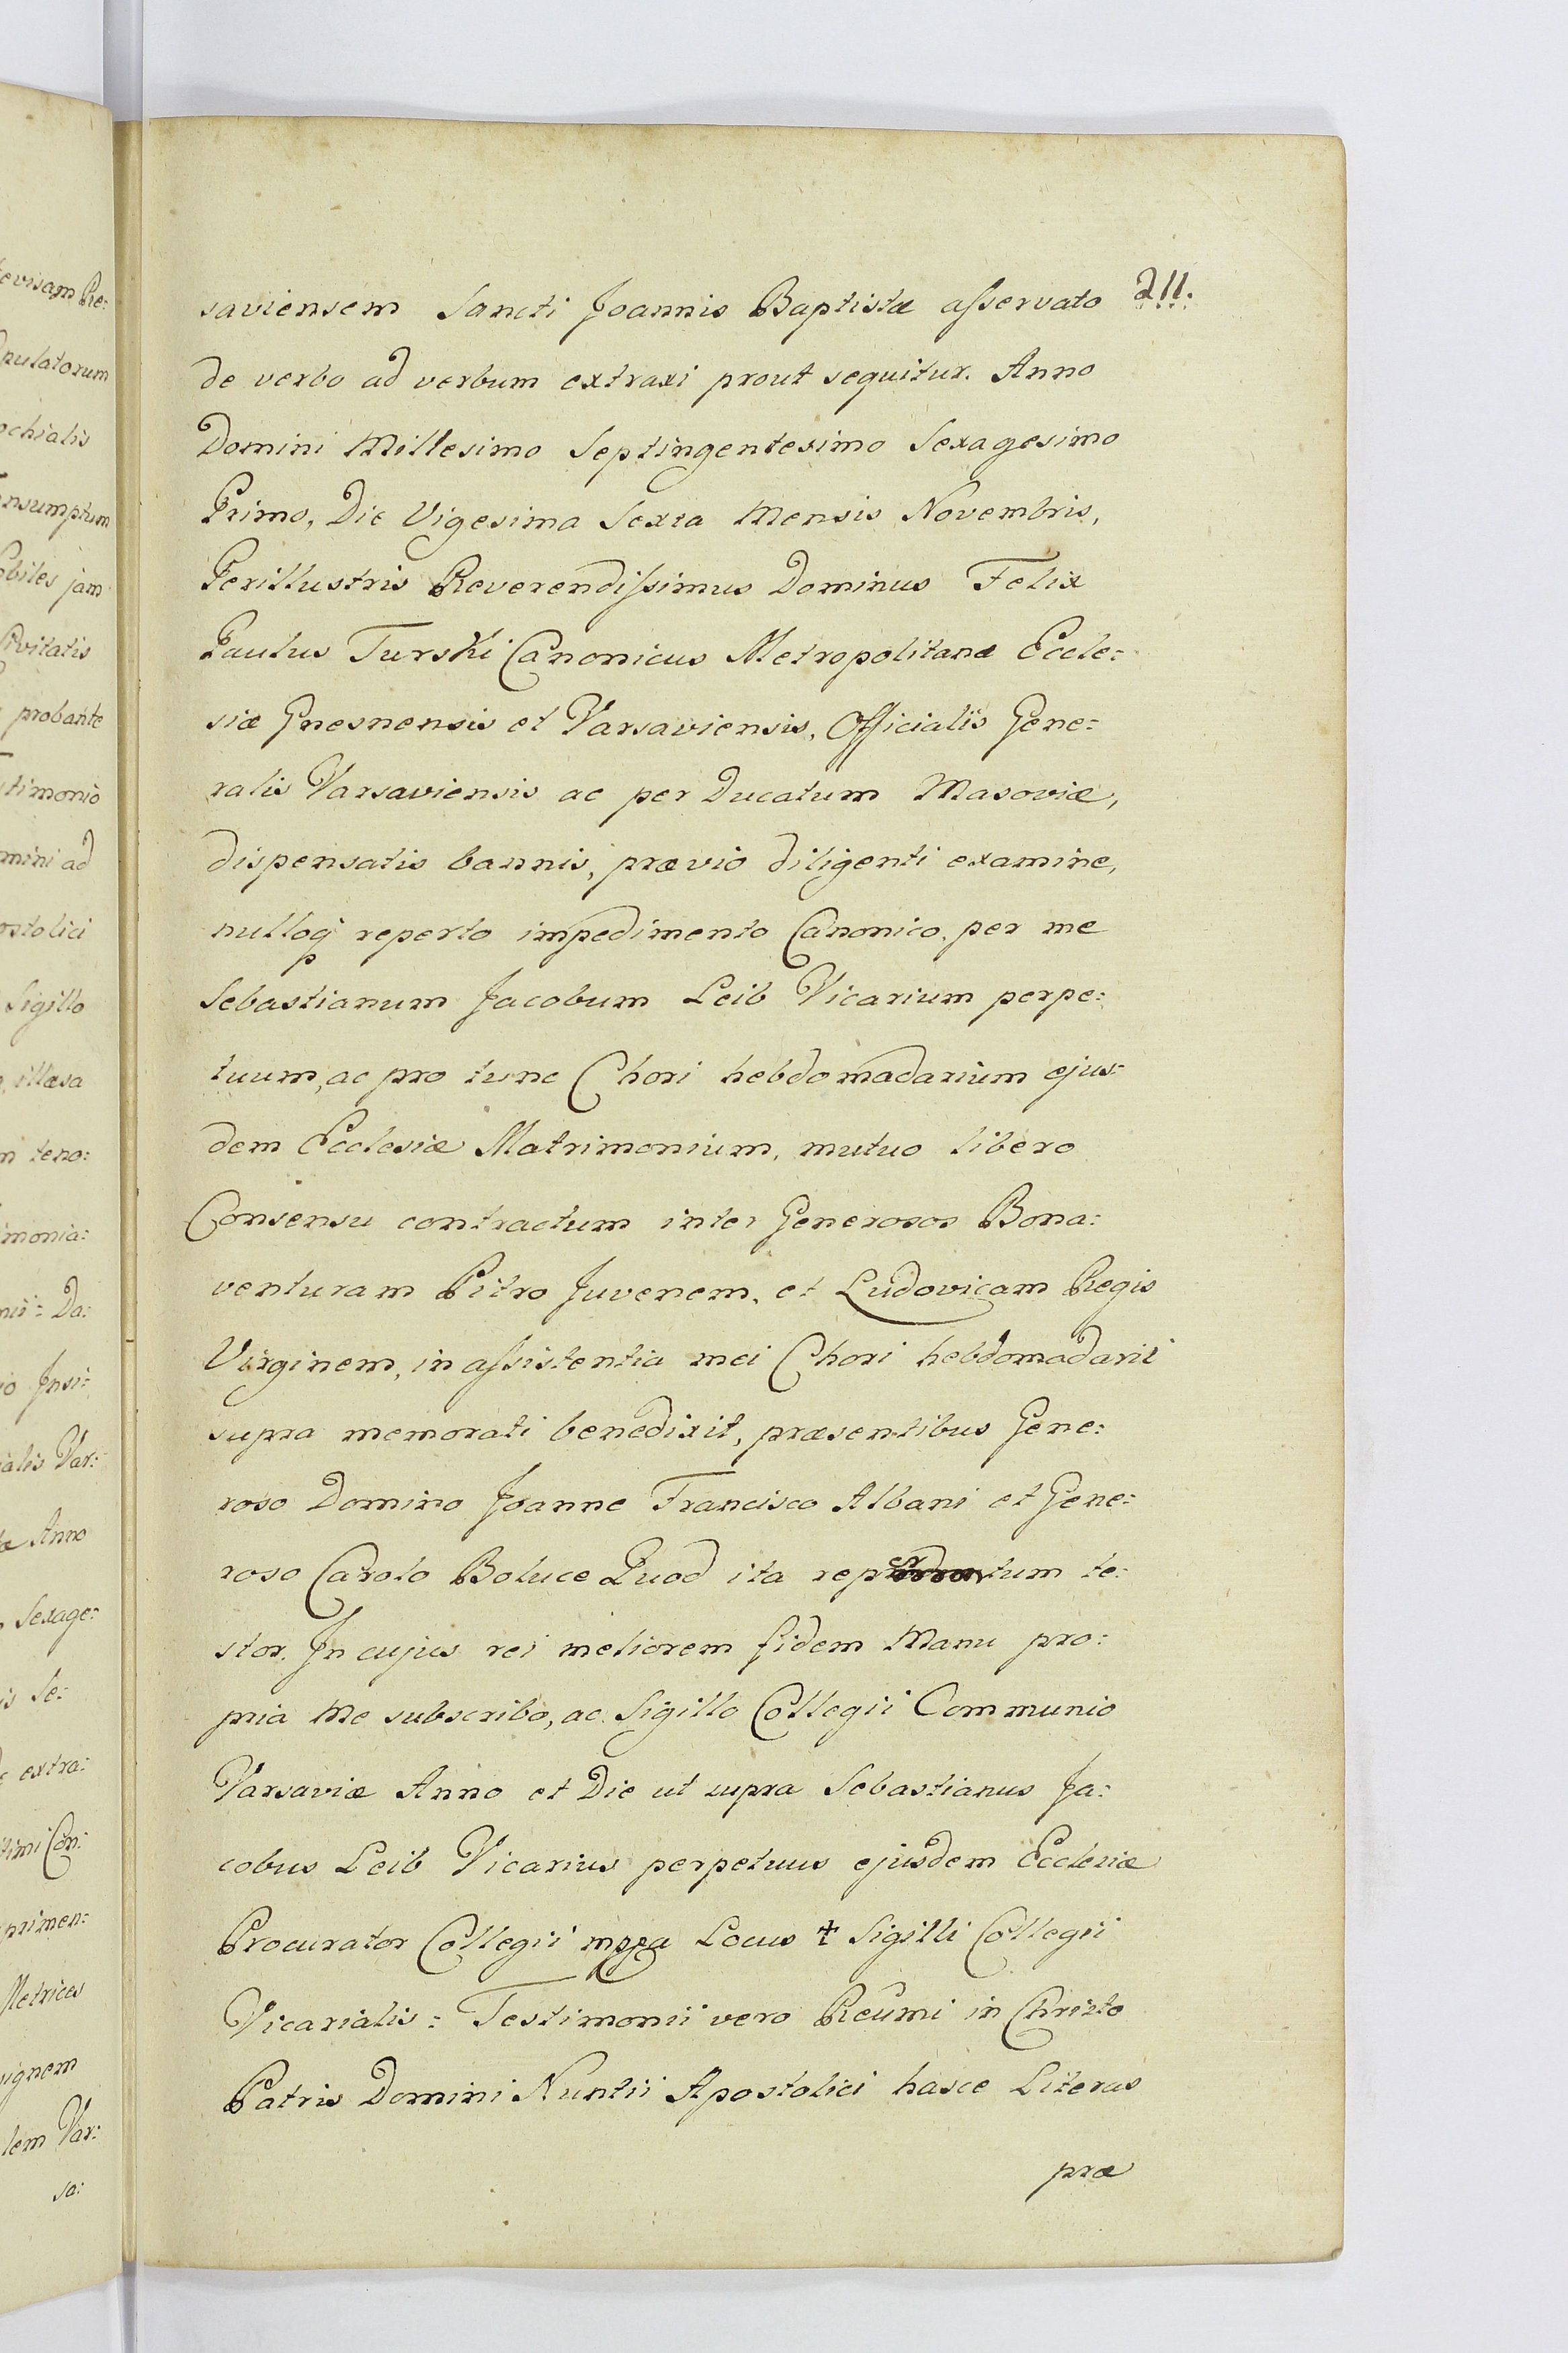 211.
saviensem Sancti Joannis Baptistæ asservato
de verbo ad verbum extraxi prout sequitur. Anno
Domini Millesimo Septingentesimo Sexagesimo
Primo, Die Vigesima Sexta Mensis Novembris,
Perillustris Reverendissimus Dominus Felix
Paulus Turski Canonicus Metropolitanæ Eccle:
siæ Gnesnensis et Varsaviensis, Officialis Gene:
ralis Varsaviensis ac per Ducatum Masoviæ,
dispensatis bannis, prævio diligenti examine,
nulloq reperto impedimento Canonico, per me
Sebastianum Jacobum Leib Vicarium perpe:
tuum, ac pro tunc Chori hebdomadarium ejus:
dem Ecclesiæ Matrimonium, mutuo libero
Consensu contractum inter Generosos Bona:
venturam Pitro Juvenem, et Ludovicam Regis
Virginem, in assistentia mei Chori hebdomadarii
supra memorati benedixit, præsentibus Gene:
roso Domino Joanne Francisco Albani et Gene:
roso Carolo Boluce Quod ita te:
stor. In cujus rei meliorem fidem Manu pro:
pria Me subscribo, ac Sigillo Collegii Communio
Varsaviæ Anno et Die ut supra Sebastianus Ja:
cobus Leib Vicarius perpetuus ejusdem Ecclesiæ
Procurator Collegii mppa Locus ‡ Sigilli Collegii
Vicarialis: Testimonii vero Reûmi in Christo
Patris Domini Nuntii Apostolici hasce Literas
præ
evisam Re:
pulatorum
chialis
nsumptum
biles jam
Civitatis
probante
timonio
mini ad
ostolici
Sigillo
illæsa
m teno:
imonia:
nii: Da:
io Insi:
ialis Var:
æ Anno
Sexage:
is Se:
extra:
timi Con:
primen:
Metrices
signem
lem Var:
sa: